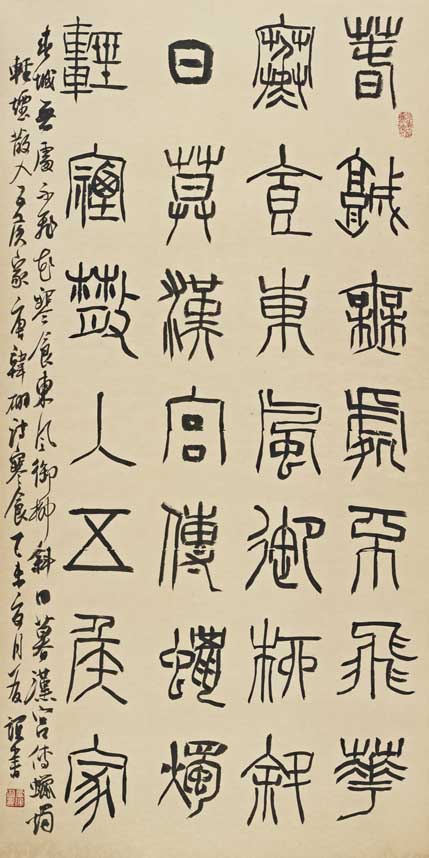 春城無處不飛華
寒食東風御柳斜
日莫漢宮傳蠟燭
輕煙散入五侯家
春城无處不飛花寒食東风御柳斜日暮漢宮傳蠟燭
輕煙散入五侯家唐韓翃詩寒食未月書